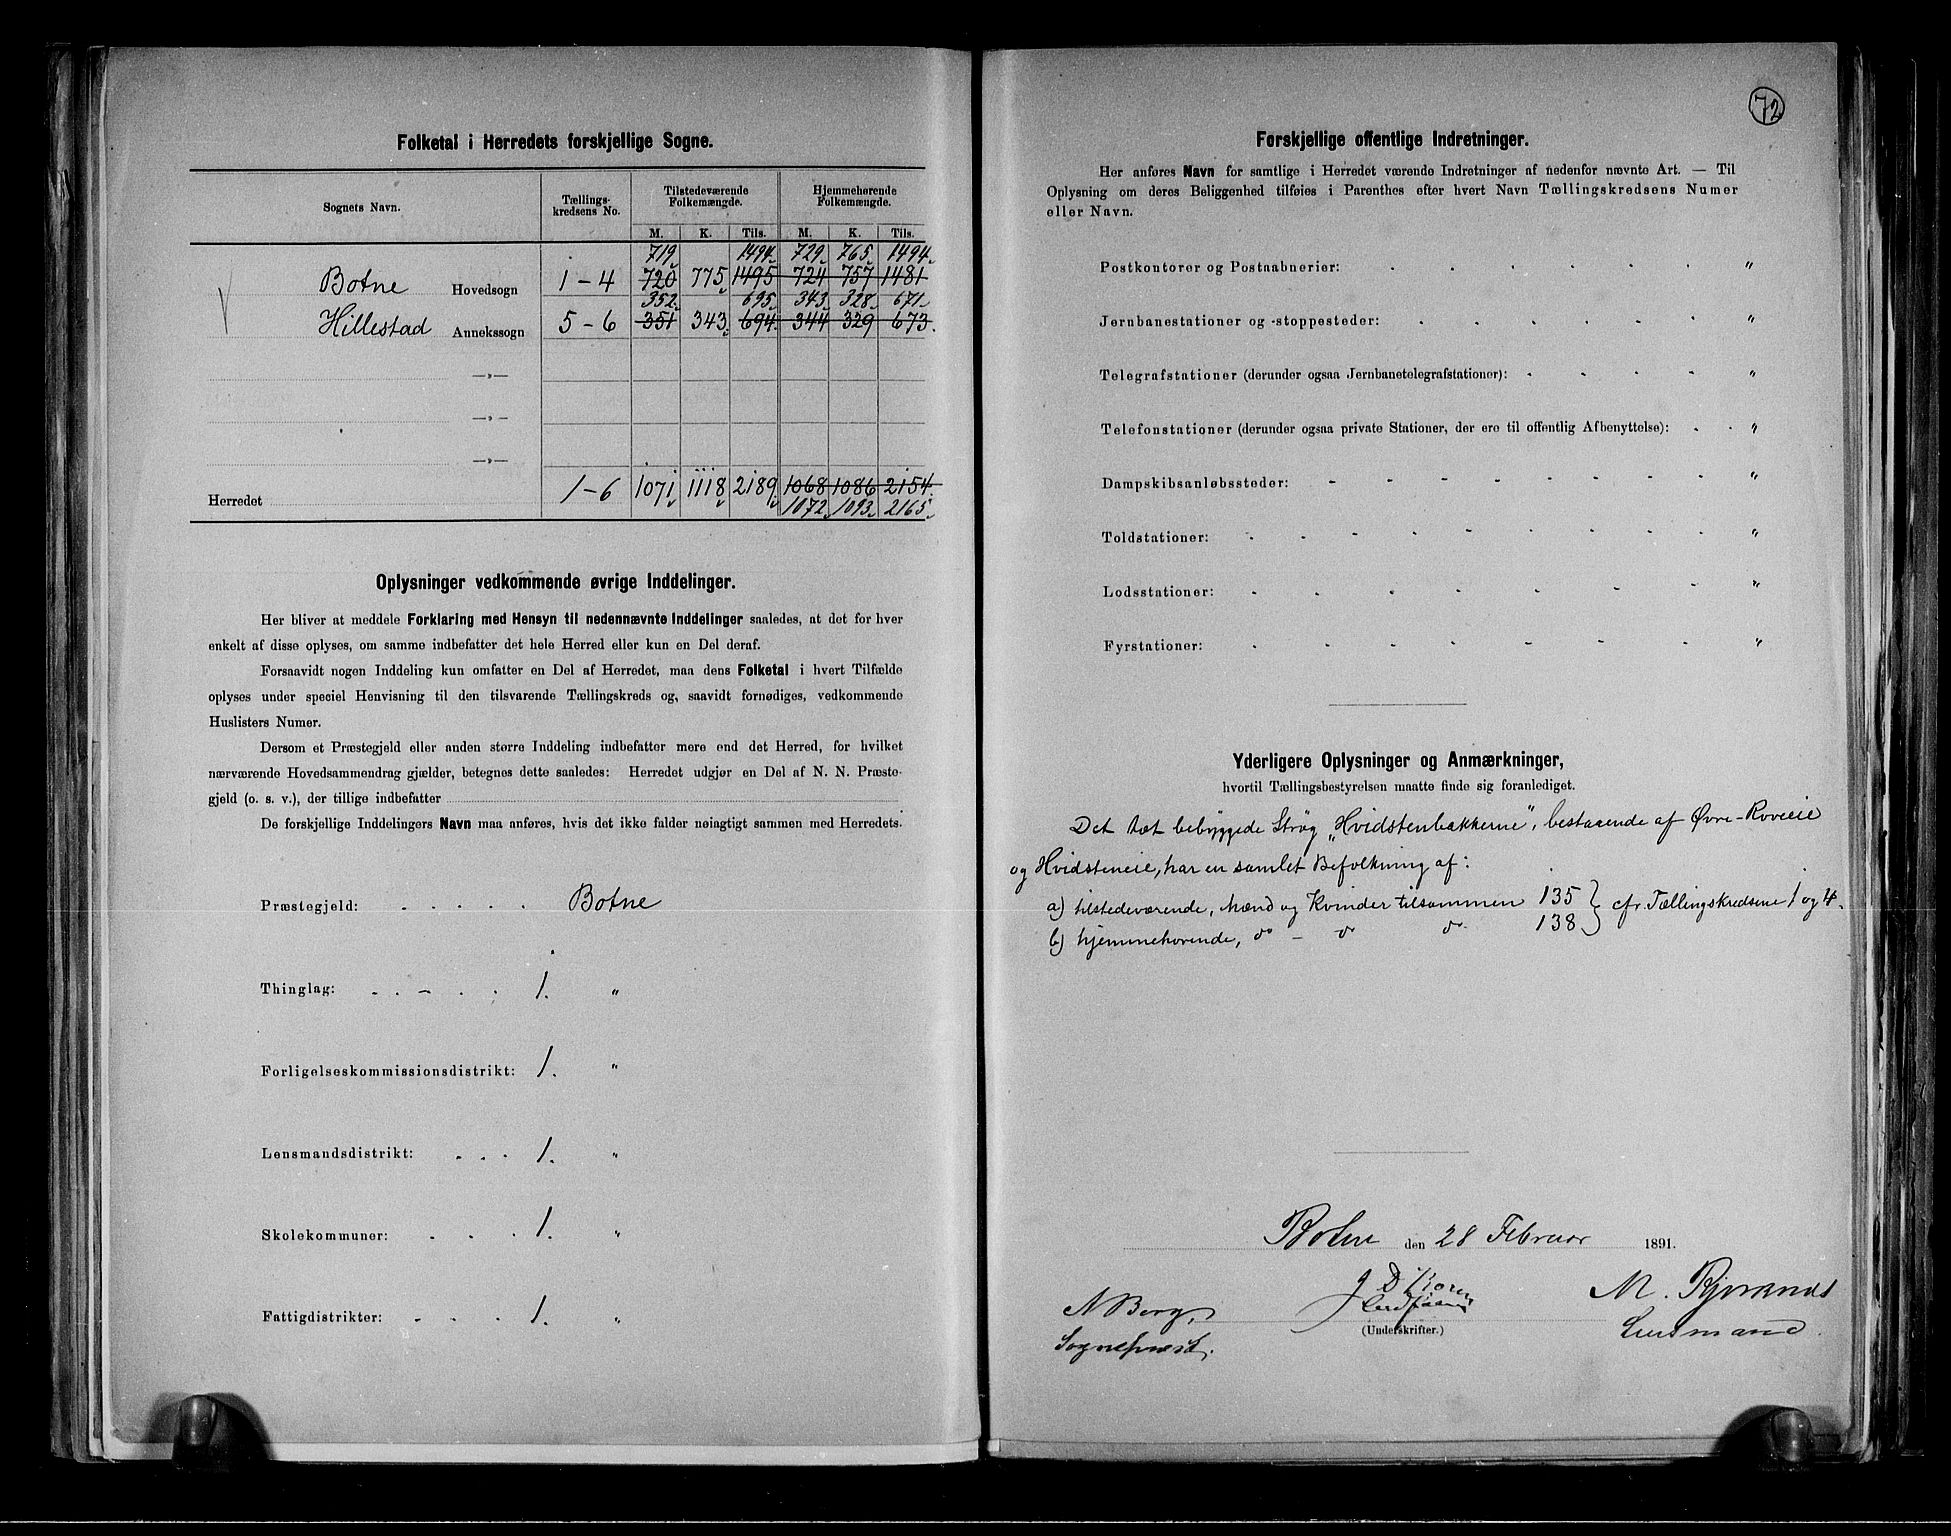 Folketal i Herredets forskjellige Sogne.
Sognets Navn. Tællings- kredsens No. Tilstedeværende Folkemængde. Hjemmehørende Folkemængde.
M. K. Tils. M. K. Tils.
719 1494 729 765 1494
Botne Hovedsogn 1-4 720 775 1495 724 757 1481
352 695 343 328 671
Hillestad Annekssogn 5-6 351 343 694 344 329 673
—„—
—„—
—„—
Herredet 1-6 1071 1118 2189 1068 1086 2154
1072 1093 2165
Oplysninger vedkommende øvrige Inddelinger.
Her bliver at meddele Forklaring med Hensyn til nedennævnte Inddelinger saaledes, at det for hver
enkelt af disse oplyses, om samme indbefatter det hele Herred eller kun en Del deraf.
Forsaavidt nogen Inddeling kun omfatter en Del af Herredet, maa dens Folketal i hvert Tilfælde
oplyses under speciel Henvisning til den tilsvarende Tællingskreds og, saavidt fornødiges, vedkommende
Huslisters Numer.
Dersom et Præstegjeld eller anden større Inddeling indbefatter mere end det Herred, for hvilket
nærværende Hovedsammendrag gjælder, betegnes dette saaledes: Herredet udgjør en Del af N. N. Præste-
gjeld (o. s. v.), der tillige indbefatter
De forskjellige Inddelingers Navn maa anføres, hvis det ikke falder nøiagtigt sammen med Herredets.
Præstegjeld: Botne
Thinglag: 1. „
Forligelseskommissionsdistrikt: 1. „
Lensmandsdistrikt: 1. „
Skolekommuner: 1. „
Fattigdistrikter: 1. „
72
Forskjellige offentlige Indretninger.
Her anføres Navn for samtlige i Herredet værende Indretninger af nedenfor nævnte Art. — Til
Oplysning om deres Beliggenhed tilføies i Parenthes efter hvert Navn Tællingskredsens Numer
eller Navn.
Postkontorer og Postaabnerier: „
Jernbanestationer og -stoppesteder: „
Telegrafstationer (derunder ogsaa Jernbanetelegrafstationer): „
Telefonstationer (derunder ogsaa private Stationer, der ere til offentlig Afbenyttelse): „
Dampskibsanløbssteder: „
Toldstationer: „
Lodsstationer: „
Fyrstationer: „
Yderligere Oplysninger og Anmærkninger,
hvortil Tællingsbestyrelsen maatte finde sig foranlediget.
Det tæt bebyggede Strøg „Hvidstenbakkerne", bestaaende af Øvre-Roveie
og Hvidsteneie, har en samlet Befolkning af:
a) tilstedeværende, Mænd og Kvinder tilsammen 135 } cfr. Tællingskredsene 1 og 4.
b) hjemmehørende, do - do do 138 }
Botne den 28 Februar 1891.
N Berg, M. Bjørands
(Underskrifter.)
Sognepræst. Lensmand.